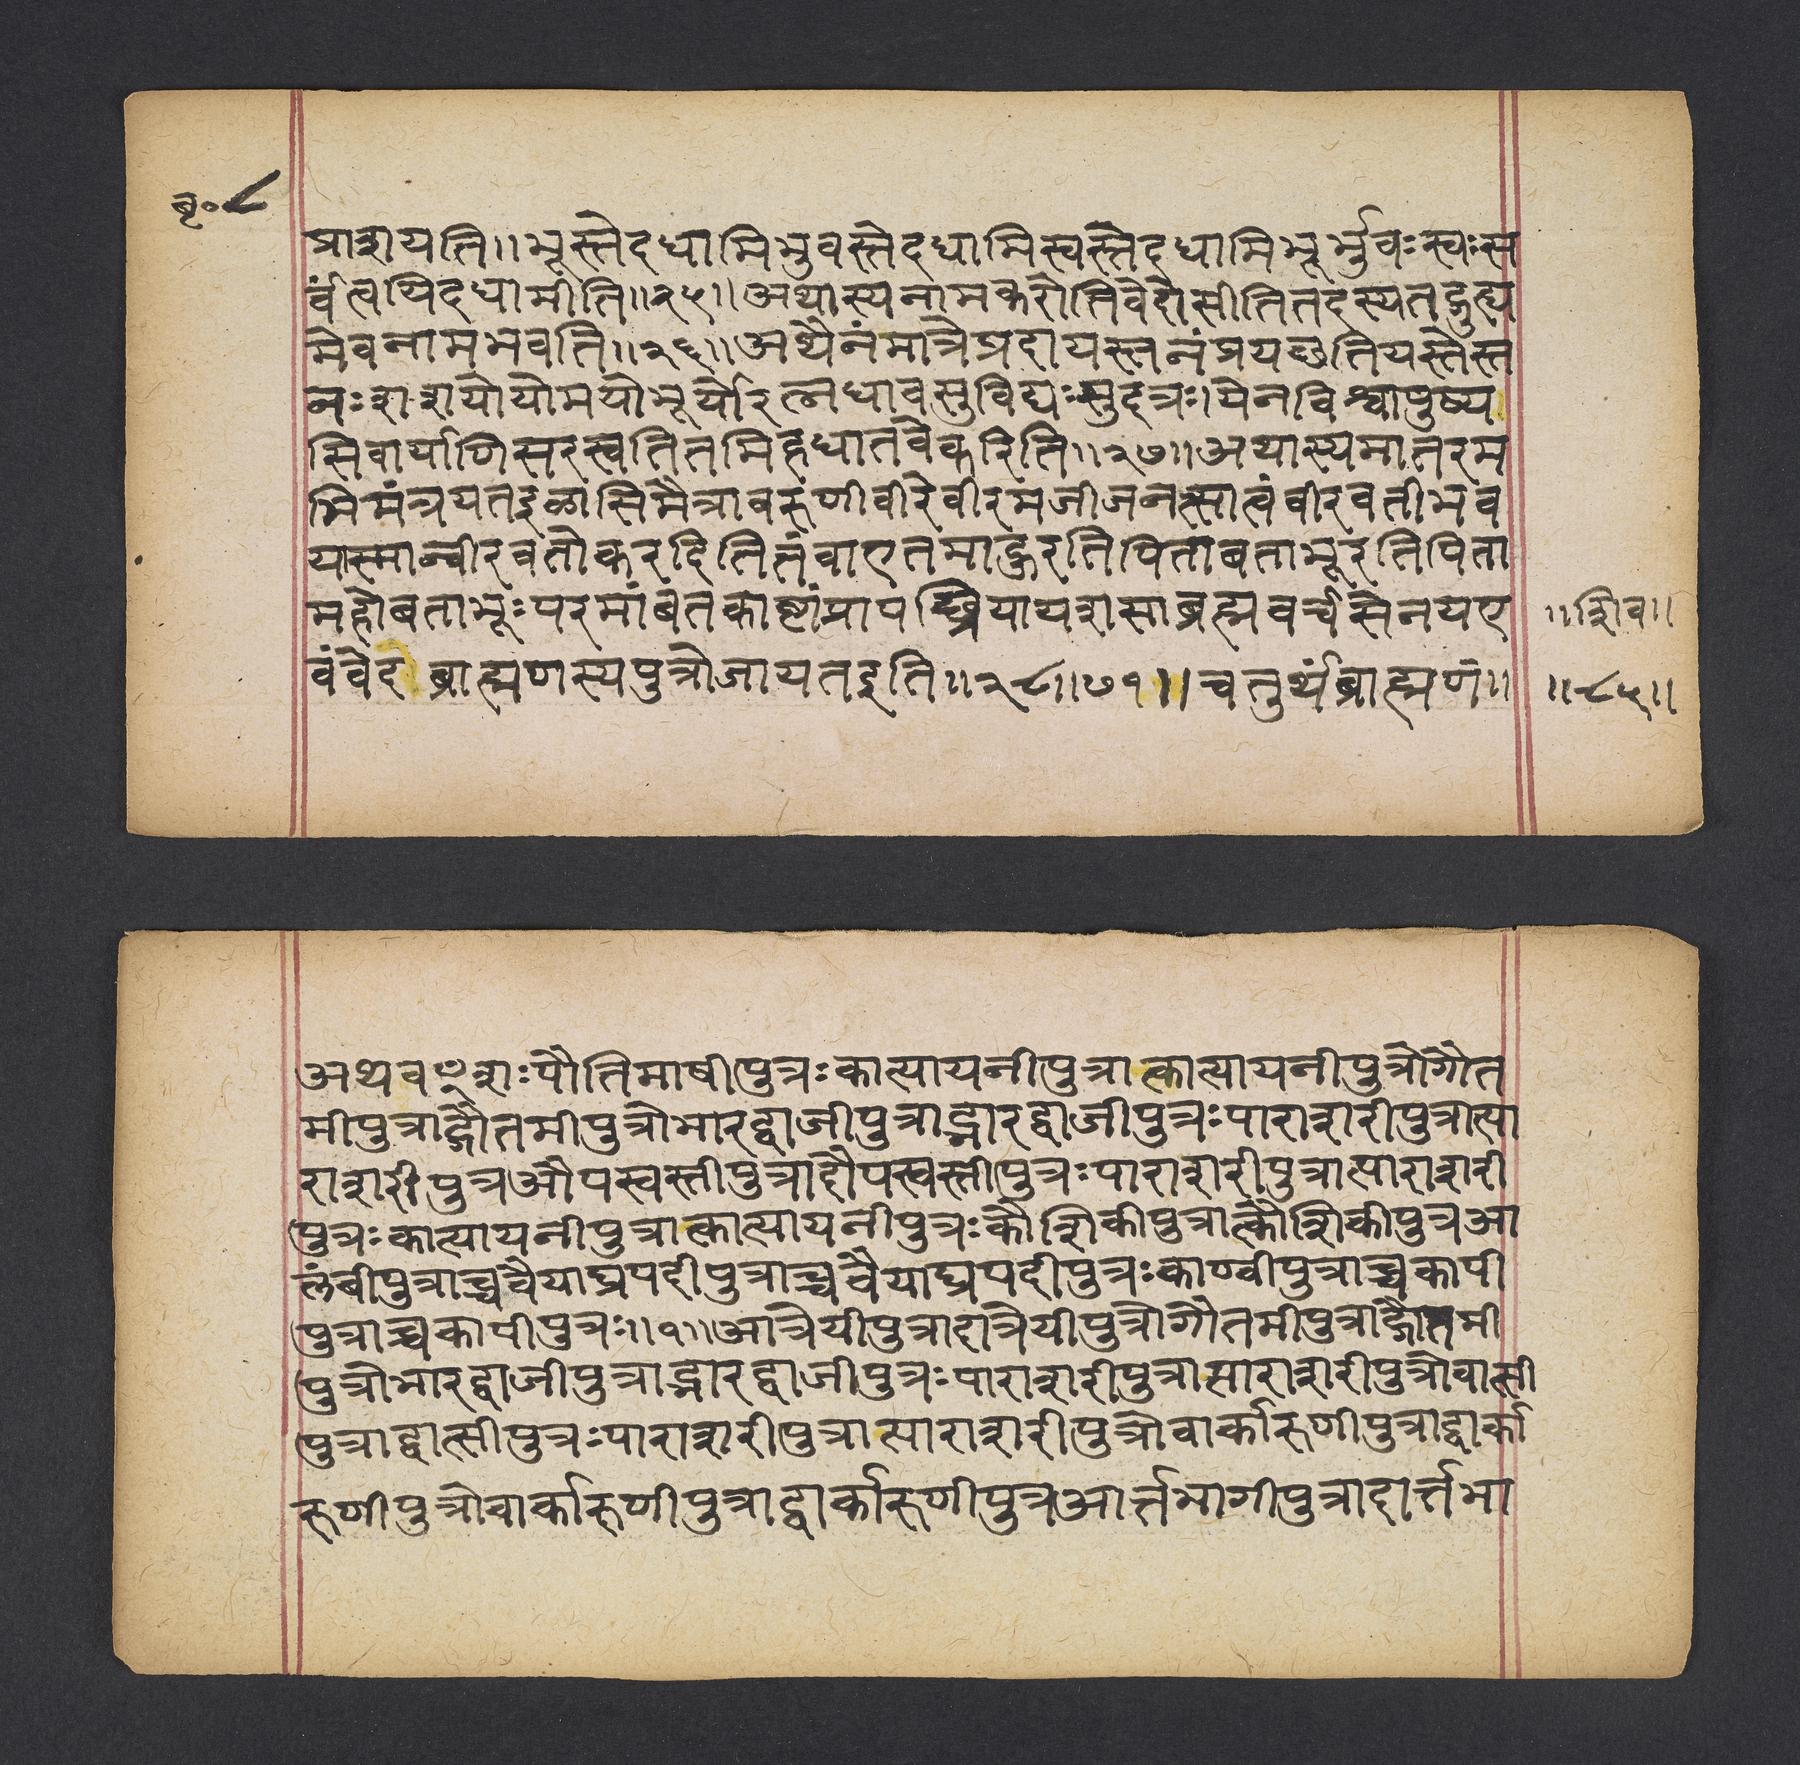 बृ॰ ८
प्राशयति॥ भूस्तेदधामिभुवस्तेदधामिस्वस्तेदधामिभूर्भुवःस्वःस
र्वंत्वयिदधामीति॥२५॥ अथास्यनामकरोतिवेदोसीतितदस्यतद्गुह्य
मेवनामभवति॥२६॥ अथैनंमात्रेप्रदायस्तनंप्रयछतियस्तेस्त
नःशशयोयोमयोभूर्योरत्नधावसुविद्यःसुदत्रः।येनविश्वापुष्य
सिवार्याणिसरस्वतितमिहधातवेकरिति॥२७॥ अथास्यमातरम
भिमंत्रयतइळासिमैत्रावरुणीवीरेवीरमजीजनत्सात्वंवीरवतीभव
यास्मान्वीरवतोकरदितितंवाएतमाहुरतिपिताबताभूरतिपिता
महोबताभूःपरमांबतकाष्टांप्रापच्छ्रियायशसाब्रह्मवर्चसेनयए
॥शिव॥
वंवेद ब्राह्मणस्यपुत्रोजायतइति॥२८॥७१॥ चतुर्थंब्राह्मणं॥
॥८५॥
अथवꣳशःपौतिमाषीपुत्रःकात्यायनीपुत्रात्कात्यायनीपुत्रोगौत
मीपुत्राद्गौतमीपुत्रोभारद्वाजीपुत्राद्भारद्वाजीपुत्रःपाराशरीपुत्रात्पा
राशरीपुत्रऔपस्वस्तीपुत्रादौपस्वस्तीपुत्रःपाराशरीपुत्रात्पाराशरी
पुत्रःकात्यायनीपुत्रात्कात्यायनीपुत्रःकौशिकीपुत्रात्कौशिकीपुत्रआ
लंबीपुत्राच्चवैयाघ्रपदीपुत्राच्चवैयाघ्रपदीपुत्रःकाण्वीपुत्राच्चकापी
पुत्राच्चकापीपुत्रः॥१॥ आत्रेयीपुत्रादात्रेयीपुत्रोगौतमीपुत्राद्गौतमी
पुत्रोभारद्वाजीपुत्राद्भारद्वाजीपुत्रःपाराशरीपुत्रात्पाराशरीपुत्रोवात्सी
पुत्राद्वात्सीपुत्रःपाराशरीपुत्रात्पाराशरीपुत्रोवार्कारुणीपुत्राद्वार्का
रुणीपुत्रोवार्कारुणीपुत्राद्वार्कारुणीपुत्रआर्त्तभागीपुत्रादार्त्तभा